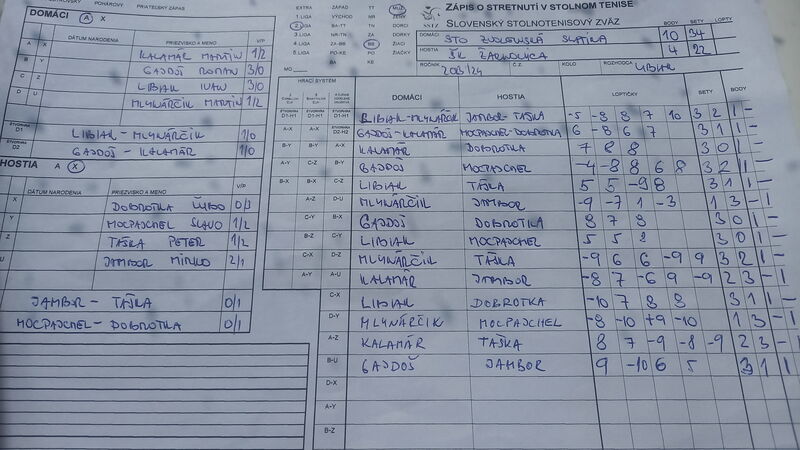 POHÁROVÝ PRIATEĽSKÝ ZÁPAS
DOMÁCI A X
DÁTUM NARODENIA PRIEZVISKO A MENO V/P
A X KALAMÁR MARTIN 1/2
B Y GAJDOŠ ROMAN 3/0
C Z LIBIAK IVAN 3/0
D U MLYNÁRČIK MARTIN 1/2
ŠTVORHRA D1 LIBIAK - MLYNÁRČIK 1/0
ŠTVORHRA D2 GAJDOŠ - KALAMÁR 1/0
HOSTIA A X
DÁTUM NARODENIA PRIEZVISKO A MENO V/P
X DOBROTKA ĽUBO 0/3
Y MOCPAJCHEL SLAVO 1/2
Z TAŠKA PETER 1/2
U JAMBOR MIRKO 2/1
JAMBOR - TAŠKA 0/1
MOCPAJCHEL - DOBROTKA 0/1
EXTRA ZÁPAD TT MUŽI
1 LIGA VÝCHOD NR ŽENY
2 LIGA BA-TT TN DORCI
3 LIGA NR-TN ZA DORKY
4 LIGA ZA-BB BB ŽIACI
5 LIGA PO-KE PO ŽIAČKY
BA KE
MO
SSTZ
ZÁPIS O STRETNUTÍ V STOLNOM TENISE
SLOVENSKÝ STOLNOTENISOVÝ ZVÄZ
BODY SETY LOPTY
DOMÁCI STO ZVOLENSKÁ SLATINA 10 34
HOSTIA ŠK ŽARNOVICA 4 22
ROČNÍK 2023/24 Č.Z. KOLO ROZHODCA LIBIAK
HRACÍ SYSTÉM DOMÁCI HOSTIA LOPTIČKY SETY BODY
D1-H1 D1-H1 LIBIAK-MLYNÁRČIK JAMBOR-TAŠKA -5 -8 8 7 10 3 2 1 -
A-X D2-H2 GAJDOŠ-KALAMÁR MOCPAJCHEL-DOBROTKA 6 -8 6 7 3 1 1 -
B-Y B-Y A-X KALAMÁR DOBROTKA 7 8 8 3 0 1 -
A-Y C-Z B-Y GAJDOŠ MOCPAJCHEL -4 -8 8 6 8 3 2 1 -
B-X B-X C-Z LIBIAK TAŠKA 5 5 -9 8 3 1 1 -
A-Z D-U MLYNÁRČIK JAMBOR -9 -7 1 -3 1 3 - 1
C-Y B-X GAJDOŠ DOBROTKA 8 7 8 3 0 1 -
B-Z C-Y LIBIAK MOCPAJCHEL 5 5 8 3 0 1 -
C-X D-Z MLYNÁRČIK TAŠKA -9 6 6 -9 9 3 2 1 -
A-Y A-U KALAMÁR JAMBOR -8 7 -6 9 -9 2 3 - 1
C-X LIBIAK DOBROTKA -10 7 8 8 3 1 1 -
D-Y MLYNÁRČIK MOCPAJCHEL -8 -10 +9 -10 1 3 - 1
A-Z KALAMÁR TAŠKA 8 7 -9 -8 -9 2 3 - 1
B-U GAJDOŠ JAMBOR 9 -10 6 5 3 1 1
D-X
A-Y
B-Z